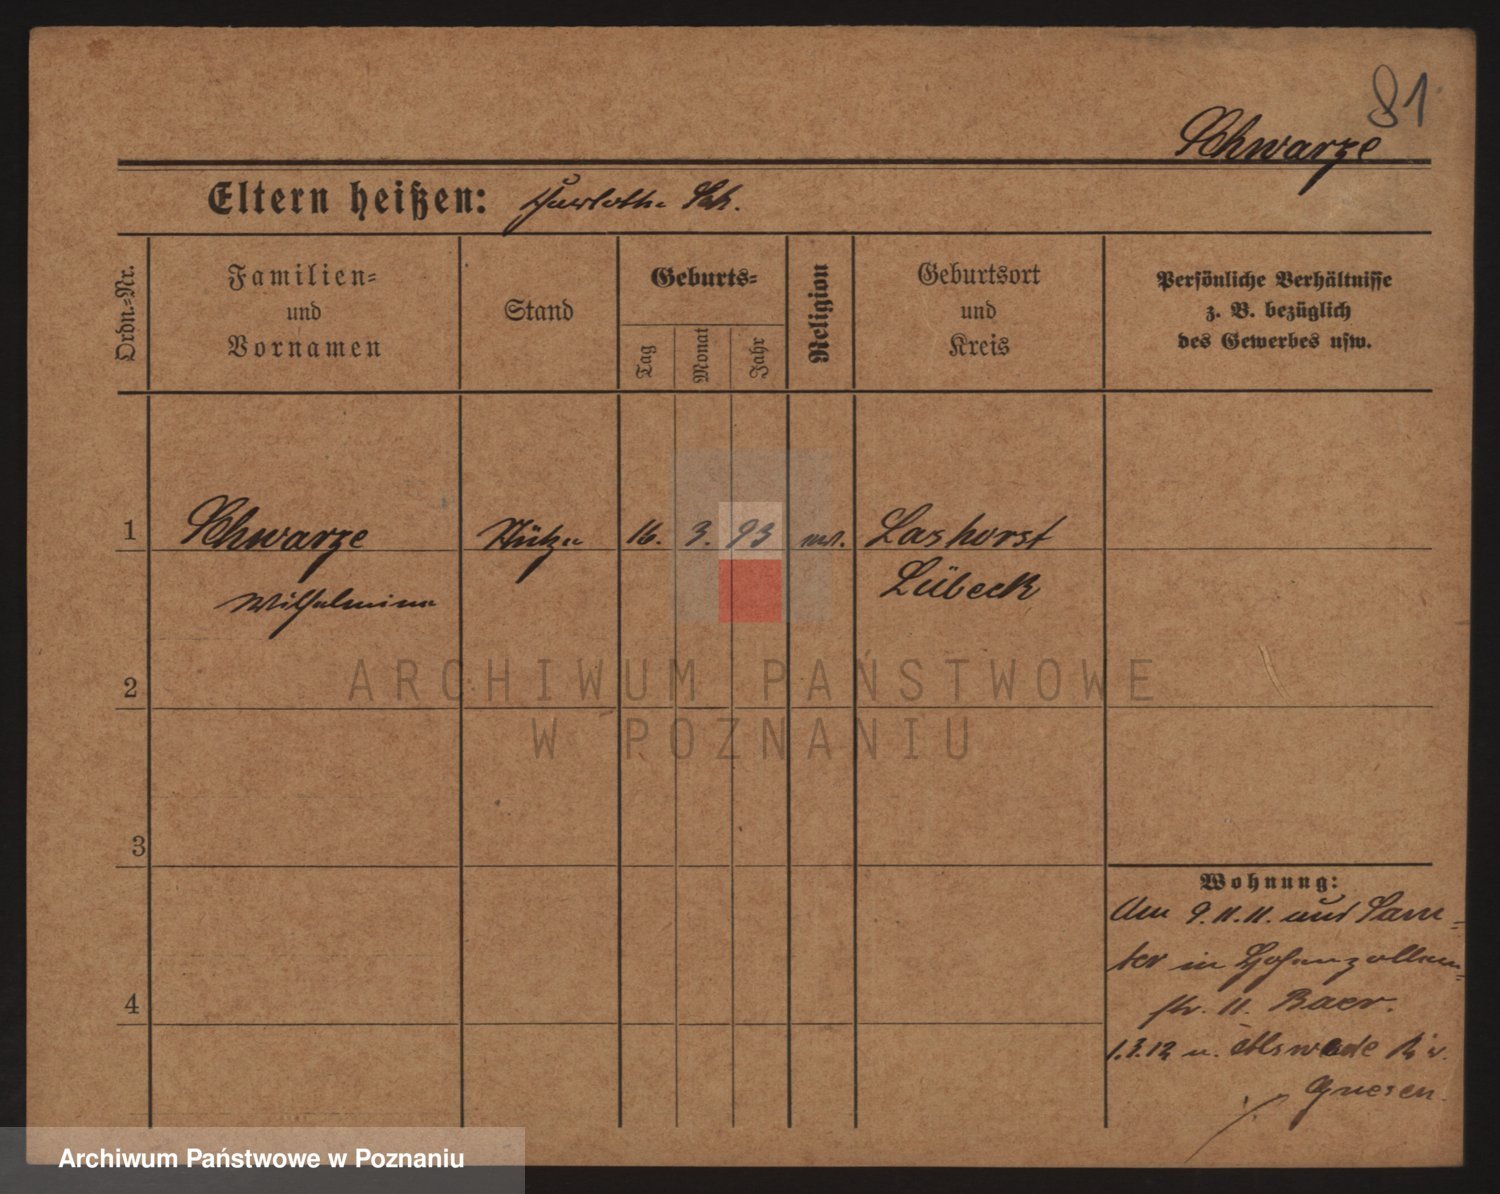 81
Schwarze
Eltern heißen: Sch.
Ordn.-Nr.
Familien-
und
Vornamen
Stand
Geburts-
Tag
Monat
Jahr
Religion
Geburtsort
und
Kreis
Persönliche Verhältnisse
z. B. bezüglich
des Gewerbes usw.
1 Schwarze Stütze 16. 3. 93 Lashorst
Wilhelmine Lübeck
2
3
4
Wohnung:
Am 9.11.11. aus Sam=
ter in Hohenzollern=
str. 11. Baer.
1.3.12 n.
Gnesen.
ARCHIWUM PAŃSTWOWE
W POZNANIU
Archiwum Państwowe w Poznaniu